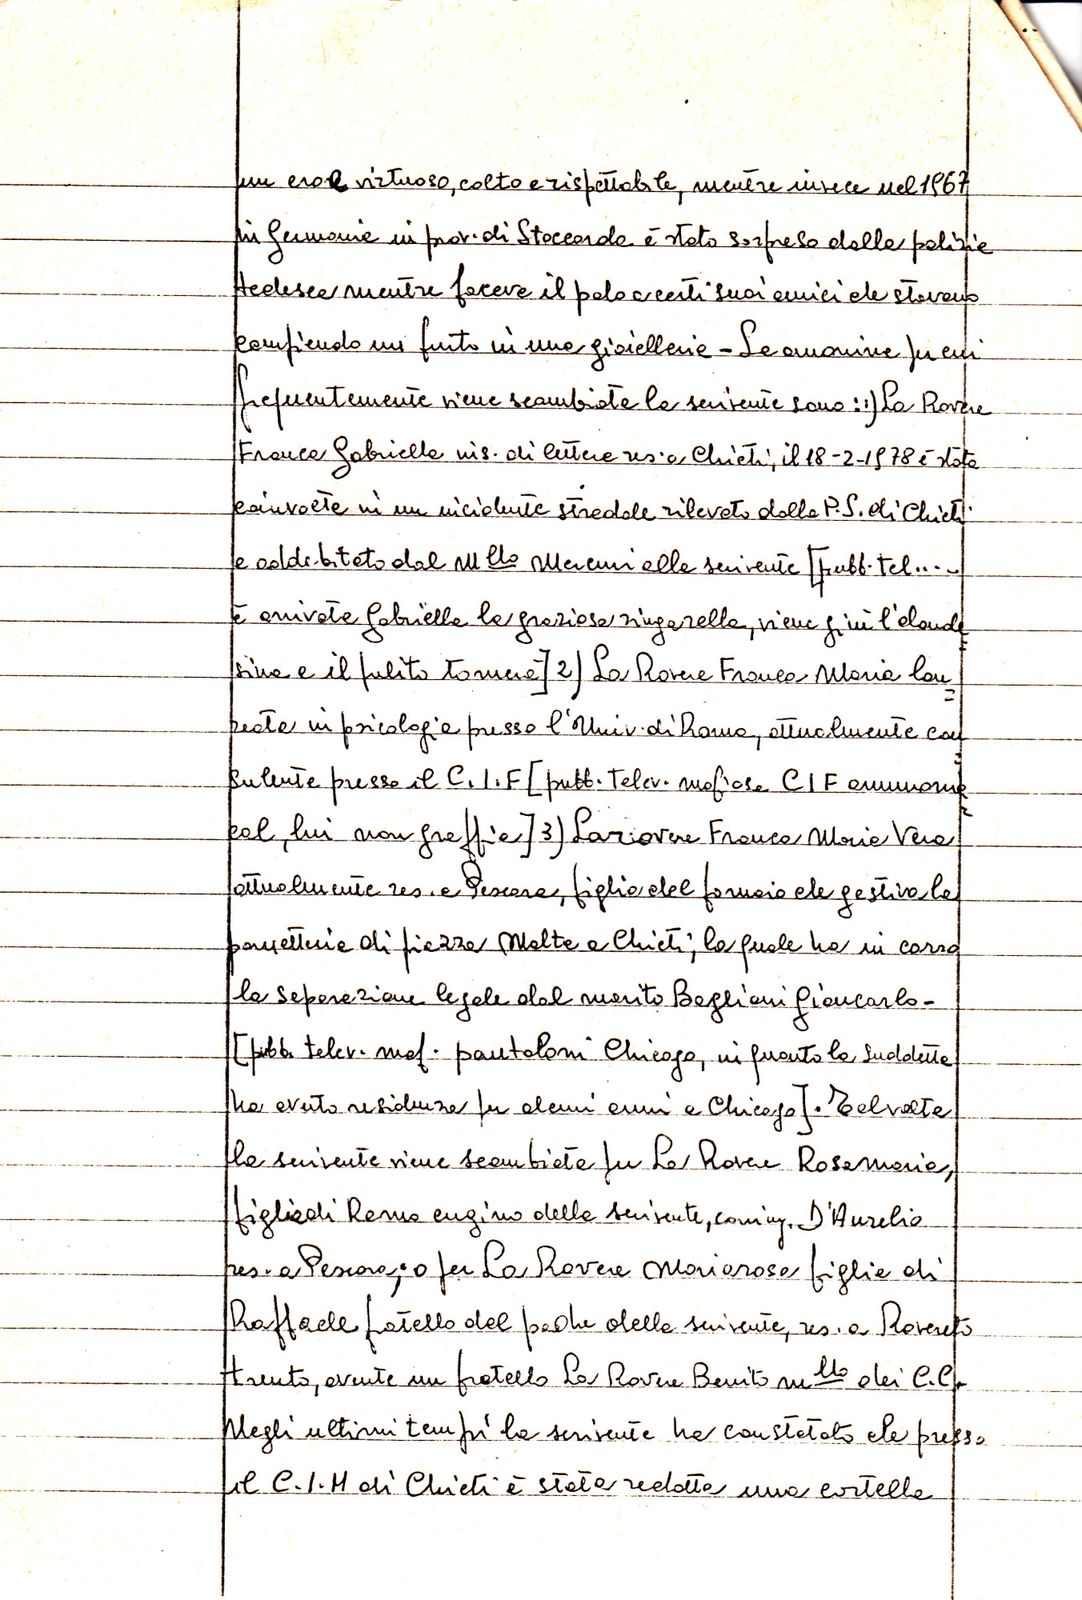 un eroe virtuoso, colto e rispettabile, mentre invece nel 1967
in Germania in prov. di Stoccarda è stato sorpreso dalla polizia
tedesca mentre faceva il palo a certi suoi amici che stavano
compiendo un furto in una gioielleria - Le omonime per cui
frequentemente viene scambiata la scrivente sono: 1) La Rovere
Franca Gabriella ins. di lettere res. a Chieti, il 18-2-1978 è stata
coinvolta in un incidente stradale rilevato dalla P.S. di Chieti
e addebitato dal M.llo Merceri alla scrivente [pubb. tel....
è arrivata Gabriella la graziosa zingarella, viene giù l'clande
sina e il pulito tornerà] 2) La Rovere Franca Maria lau=
reata in psicologia presso l'Univ. di Roma, attualmente con=
sulente presso il C.I.F [pubb. telev. mafiosa CIF ammonia=
cal, lui non graffia] 3) Larovere Franca Maria Vera
attualmente res. a Pescara, figlia del fornaio che gestiva la
panetteria di piazza Malta a Chieti, la quale ha in corso
la separazione legale dal marito Baglioni Giancarlo -
[pubb. telev. maf. pantaloni Chicago, in quanto la suddetta
ha avuto residenza per alcuni anni a Chicago]. Talvolta
la scrivente viene scambiata per La Rovere Rosamaria,
figlia di Remo cugino della scrivente, coniug. D'Aurelio
res. a Pescara; o per La Rovere Mariarosa figlia di
Raffaele fratello del padre della scrivente, res. a Rovereto
Trento, avente un fratello La Rovere Benito m.llo dei C.C.
Negli ultimi tempi la scrivente ha constatato che presso
il C.I.M di Chieti è stata redatta una cartella